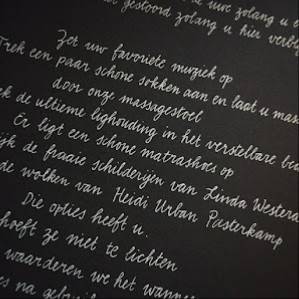 de uwe zolang u
gestoord zolang u hier verb
Zet uw favoriete muziek op
Trek een paar schone sokken aan en laat u mas
door onze massagestoel
k de ultieme lighouding in het verstelbare be
Er ligt een schone matrashoes op
ijk de fraaie schilderijen van Linda Westera
de wolken van Heidi Urban Pasterkamp
Die opties heeft u.
hoeft ze niet te lichten
waarderen we het wanne
es na gebrui